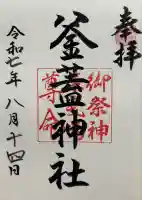 奉拝
釜蓋神社
令和七年八月十四日
御祭神
尊命